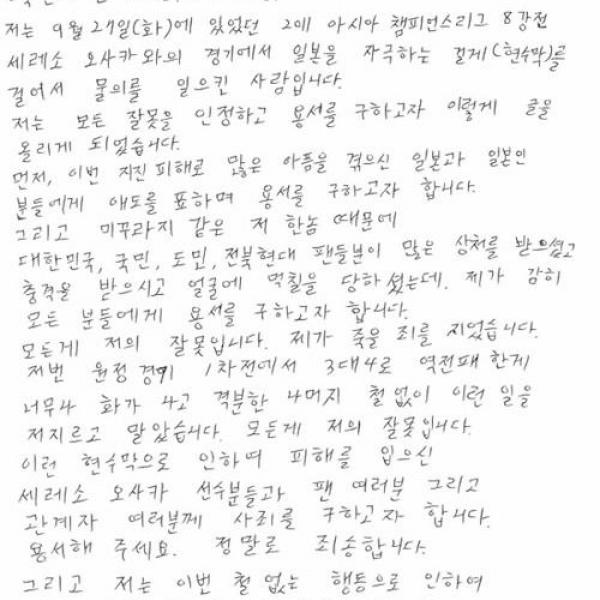 저는 9월 27일(화)에 있었던 2011 아시아 챔피언스리그 8강전
세레소 오사카와의 경기에서 일본을 자극하는 걸게(현수막)를
걸어서 물의를 일으킨 사람입니다.
저는 모든 잘못을 인정하고 용서를 구하고자 이렇게 글을
올리게 되었습니다.
먼저, 이번 지진 피해로 많은 아픔을 겪으신 일본과 일본인
분들에게 애도를 표하며 용서를 구하고자 합니다.
그리고 미꾸라지 같은 저 한놈 때문에
대한민국, 국민, 도민, 전북현대 팬들분이 많은 상처를 받으셨고
충격을 받으시고 얼굴에 먹칠을 당하셨는데, 제가 감히
모든 분들에게 용서를 구하고자 합니다.
모든게 저의 잘못입니다. 제가 죽을 죄를 지었습니다.
저번 원정 경기 1차전에서 3대4로 역전패 한게
너무나 화가 나고 격분한 나머지 철없이 이런 일을
저지르고 말았습니다. 모든게 저의 잘못입니다.
이런 현수막으로 인하여 피해를 입으신
세레소 오사카 선수분들과 팬 여러분 그리고
관계자 여러분께 사죄를 구하고자 합니다.
용서해 주세요. 정말로 죄송합니다.
그리고 저는 이번 철없는 행동으로 인하여